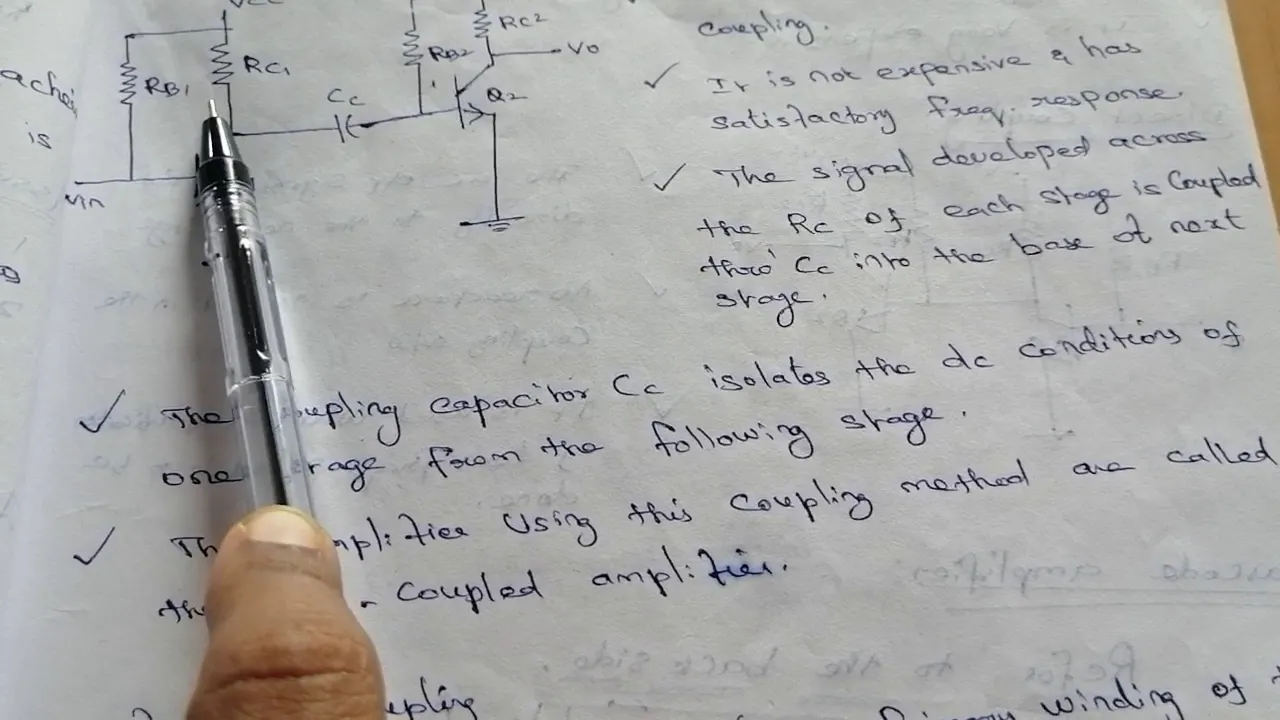 RB1
RC1
Cc
RB2
RC2
Vo
Q2
Vin
is
coupling.
It is not expensive & has
satisfactory freq. response.
The signal developed across
the Rc of each stage is coupled
thro' Cc into the base of next
stage.
The coupling capacitor Cc isolates the dc conditions of
one stage from the following stage.
The amplifier using this coupling method are called
the - coupled amplifier.
winding of